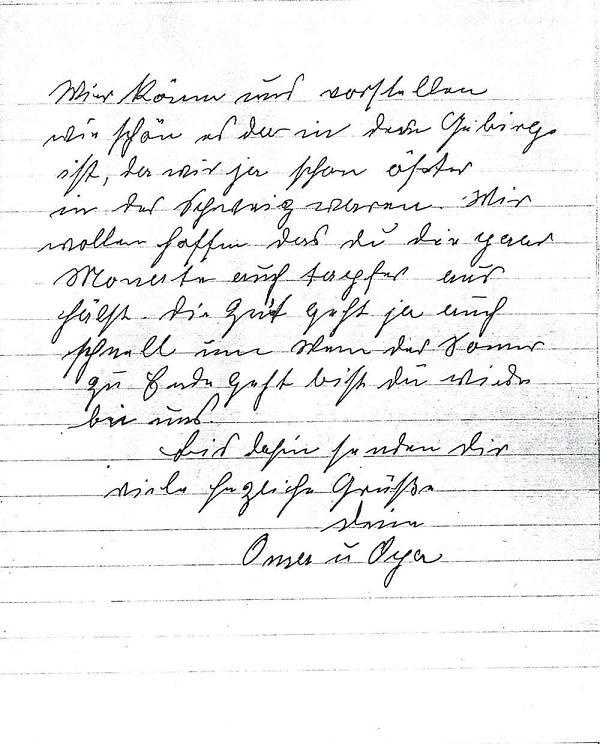 Wier könn uns vorstellen
wie schön es da in dem Gebirge
ist, da wir ja schon öfter
in der Schweiz waren. Wir
wollen hoffen das du die paar
Monate auch tapfer aus
hälst. Die Zeit geht ja auch
schnell um Wen der Somer
zu Ende geht bist du wieder
bei uns.
Bis dahin senden dir
viele hezliche Grüße
Deine
Oma u Opa